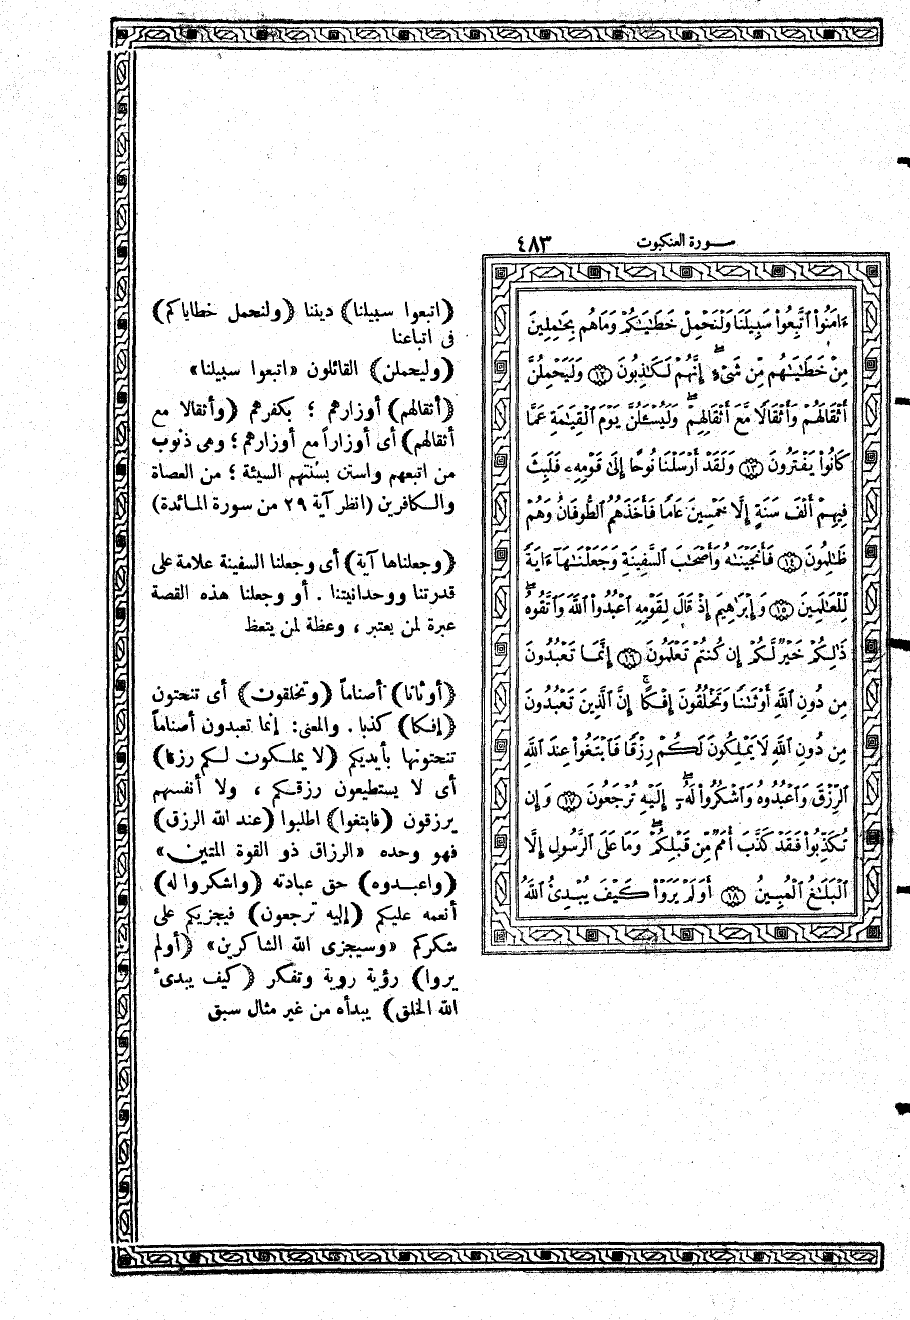 سورة العنكبوت ٤٨٣
ءَامَنُوا۟ ٱتَّبِعُوا۟ سَبِيلَنَا وَلْنَحْمِلْ خَطَـٰيَـٰكُمْ وَمَا هُم بِحَـٰمِلِينَ
مِنْ خَطَـٰيَـٰهُم مِّن شَىْءٍ ۖ إِنَّهُمْ لَكَـٰذِبُونَ ١٢ وَلَيَحْمِلُنَّ
أَثْقَالَهُمْ وَأَثْقَالًا مَّعَ أَثْقَالِهِمْ ۖ وَلَيُسْـَٔلُنَّ يَوْمَ ٱلْقِيَـٰمَةِ عَمَّا
كَانُوا۟ يَفْتَرُونَ ١٣ وَلَقَدْ أَرْسَلْنَا نُوحًا إِلَىٰ قَوْمِهِۦ فَلَبِثَ
فِيهِمْ أَلْفَ سَنَةٍ إِلَّا خَمْسِينَ عَامًا فَأَخَذَهُمُ ٱلطُّوفَانُ وَهُمْ
ظَـٰلِمُونَ ١٤ فَأَنجَيْنَـٰهُ وَأَصْحَـٰبَ ٱلسَّفِينَةِ وَجَعَلْنَـٰهَآ ءَايَةً
لِّلْعَـٰلَمِينَ ١٥ وَإِبْرَٰهِيمَ إِذْ قَالَ لِقَوْمِهِ ٱعْبُدُوا۟ ٱللَّهَ وَٱتَّقُوهُ ۖ
ذَٰلِكُمْ خَيْرٌ لَّكُمْ إِن كُنتُمْ تَعْلَمُونَ ١٦ إِنَّمَا تَعْبُدُونَ
مِن دُونِ ٱللَّهِ أَوْثَـٰنًا وَتَخْلُقُونَ إِفْكًا ۚ إِنَّ ٱلَّذِينَ تَعْبُدُونَ
مِن دُونِ ٱللَّهِ لَا يَمْلِكُونَ لَكُمْ رِزْقًا فَٱبْتَغُوا۟ عِندَ ٱللَّهِ
ٱلرِّزْقَ وَٱعْبُدُوهُ وَٱشْكُرُوا۟ لَهُۥٓ ۖ إِلَيْهِ تُرْجَعُونَ ١٧ وَإِن
تُكَذِّبُوا۟ فَقَدْ كَذَّبَ أُمَمٌ مِّن قَبْلِكُمْ ۖ وَمَا عَلَى ٱلرَّسُولِ إِلَّا
ٱلْبَلَـٰغُ ٱلْمُبِينُ ١٨ أَوَلَمْ يَرَوْا۟ كَيْفَ يُبْدِئُ ٱللَّهُ
(اتبعوا سبيلنا) ديننا (ولنحمل خطاياكم)
فى اتباعنا
(وليحملن) القائلون «اتبعوا سبيلنا»
(أثقالهم) أوزارهم ؛ بكفرهم (وأثقالا مع
أثقالهم) أى أوزاراً مع أوزارهم ؛ وهى ذنوب
من اتبعهم واستن بسنتهم السيئة ؛ من العصاة
والكافرين (انظر آية ٢٩ من سورة المائدة)
(وجعلناها آية) أى وجعلنا السفينة علامة على
قدرتنا ووحدانيتنا . أو وجعلنا هذه القصة
عبرة لمن يعتبر ، وعظة لمن يتعظ
(أوثانا) أصناماً (وتخلقون) أى تنحتون
(إفكا) كذبا . والمعنى: إنما تعبدون أصناماً
تنحتونها بأيديكم (لا يملكون لكم رزقا)
أى لا يستطيعون رزقكم ، ولا أنفسهم
يرزقون (فابتغوا) اطلبوا (عند الله الرزق)
فهو وحده «الرزاق ذو القوة المتين»
(واعبدوه) حق عبادته (واشكروا له)
أنعمه عليكم (إليه ترجعون) فيجزيكم على
شكركم «وسيجزى الله الشاكرين» (أولم
يروا) رؤية روية وتفكر (كيف يبدئ
الله الخلق) يبدأه من غير مثال سبق